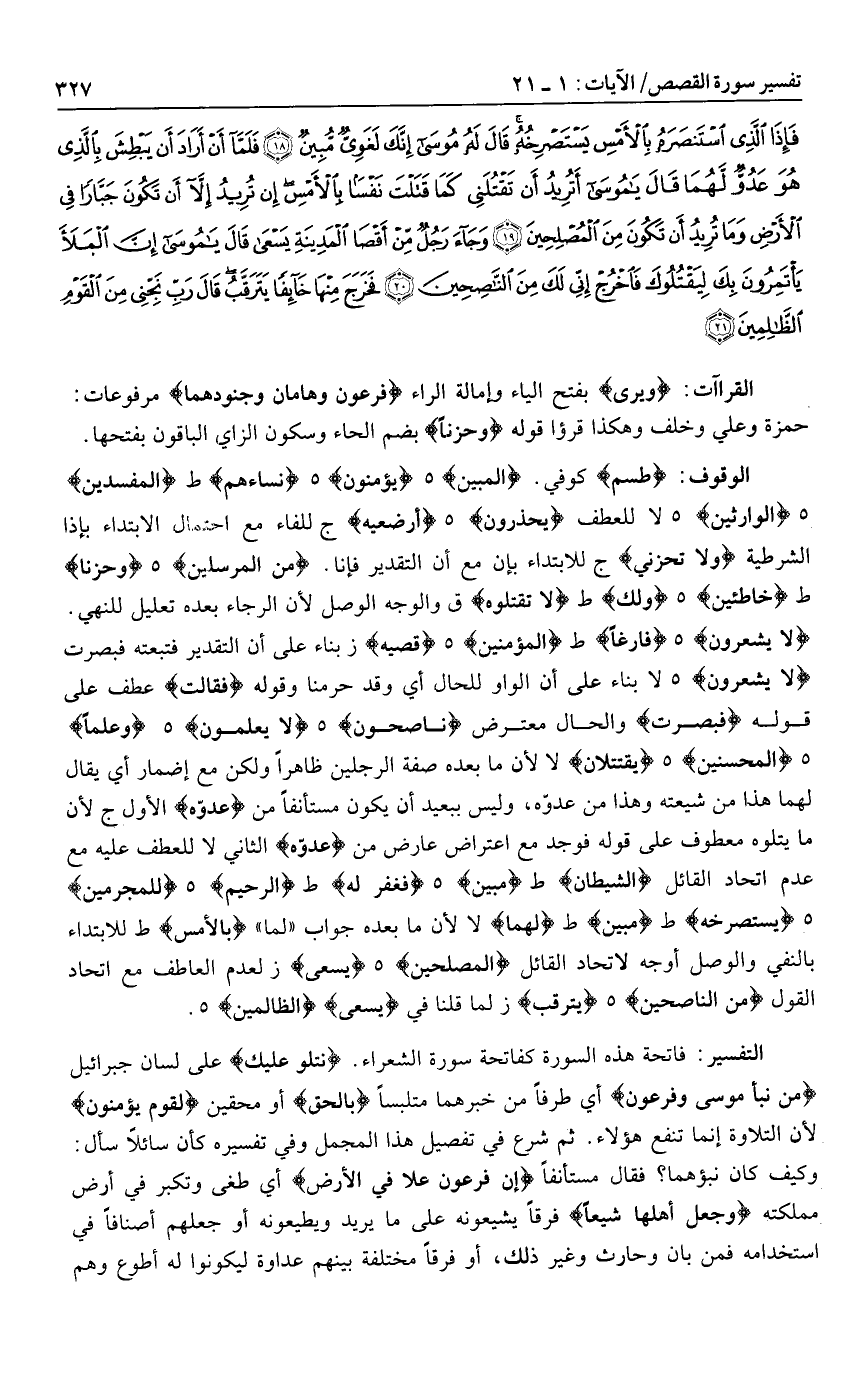 تفسير سورة القصص/ الآيات: ١ - ٢١ ٣٢٧
فَإِذَا ٱلَّذِى ٱسْتَنصَرَهُۥ بِٱلْأَمْسِ يَسْتَصْرِخُهُۥ ۚ قَالَ لَهُۥ مُوسَىٰٓ إِنَّكَ لَغَوِىٌّ مُّبِينٌ ﴿١٨﴾ فَلَمَّآ أَنْ أَرَادَ أَن يَبْطِشَ بِٱلَّذِى
هُوَ عَدُوٌّ لَّهُمَا قَالَ يَٰمُوسَىٰٓ أَتُرِيدُ أَن تَقْتُلَنِى كَمَا قَتَلْتَ نَفْسًۢا بِٱلْأَمْسِ ۖ إِن تُرِيدُ إِلَّآ أَن تَكُونَ جَبَّارًا فِى
ٱلْأَرْضِ وَمَا تُرِيدُ أَن تَكُونَ مِنَ ٱلْمُصْلِحِينَ ﴿١٩﴾ وَجَآءَ رَجُلٌ مِّنْ أَقْصَا ٱلْمَدِينَةِ يَسْعَىٰ قَالَ يَٰمُوسَىٰٓ إِنَّ ٱلْمَلَأَ
يَأْتَمِرُونَ بِكَ لِيَقْتُلُوكَ فَٱخْرُجْ إِنِّى لَكَ مِنَ ٱلنَّٰصِحِينَ ﴿٢٠﴾ فَخَرَجَ مِنْهَا خَآئِفًا يَتَرَقَّبُ ۖ قَالَ رَبِّ نَجِّنِى مِنَ ٱلْقَوْمِ
ٱلظَّٰلِمِينَ ﴿٢١﴾
القراآت: ﴿ويرى﴾ بفتح الياء وإمالة الراء ﴿فرعون وهامان وجنودهما﴾ مرفوعات:
حمزة وعلي وخلف وهكذا قرؤا قوله ﴿وحزناً﴾ بضم الحاء وسكون الزاي الباقون بفتحها.
الوقوف: ﴿طسم﴾ كوفي. ﴿المبين﴾ ٥ ﴿يؤمنون﴾ ٥ ﴿نساءهم﴾ ط ﴿المفسدين﴾
٥ ﴿الوارثين﴾ ٥ لا للعطف ﴿يحذرون﴾ ٥ ﴿أرضعيه﴾ ج للفاء مع احتمال الابتداء بإذا
الشرطية ﴿ولا تحزني﴾ ج للابتداء بإن مع أن التقدير فإنا. ﴿من المرسلين﴾ ٥ ﴿وحزنا﴾
ط ﴿خاطئين﴾ ٥ ﴿ولك﴾ ط ﴿لا تقتلوه﴾ ق والوجه الوصل لأن الرجاء بعده تعليل للنهي.
﴿لا يشعرون﴾ ٥ ﴿فارغاً﴾ ط ﴿المؤمنين﴾ ٥ ﴿قصيه﴾ ز بناء على أن التقدير فتبعته فبصرت
﴿لا يشعرون﴾ ٥ لا بناء على أن الواو للحال أي وقد حرمنا وقوله ﴿فقالت﴾ عطف على
قوله ﴿فبصرت﴾ والحال معترض ﴿ناصحون﴾ ٥ ﴿لا يعلمون﴾ ٥ ﴿وعلماً﴾
٥ ﴿المحسنين﴾ ٥ ﴿يقتتلان﴾ لا لأن ما بعده صفة الرجلين ظاهراً ولكن مع إضمار أي يقال
لهما هذا من شيعته وهذا من عدوّه، وليس ببعيد أن يكون مستأنفاً من ﴿عدوّه﴾ الأول ج لأن
ما يتلوه معطوف على قوله فوجد مع اعتراض عارض من ﴿عدوّه﴾ الثاني لا للعطف عليه مع
عدم اتحاد القائل ﴿الشيطان﴾ ط ﴿مبين﴾ ٥ ﴿فغفر له﴾ ط ﴿الرحيم﴾ ٥ ﴿للمجرمين﴾
٥ ﴿يستصرخه﴾ ط ﴿مبين﴾ ط ﴿لهما﴾ لا لأن ما بعده جواب «لما» ﴿بالأمس﴾ ط للابتداء
بالنفي والوصل أوجه لاتحاد القائل ﴿المصلحين﴾ ٥ ﴿يسعى﴾ ز لعدم العاطف مع اتحاد
القول ﴿من الناصحين﴾ ٥ ﴿يترقب﴾ ز لما قلنا في ﴿يسعى﴾ ﴿الظالمين﴾ ٥.
التفسير: فاتحة هذه السورة كفاتحة سورة الشعراء. ﴿نتلو عليك﴾ على لسان جبرائيل
﴿من نبأ موسى وفرعون﴾ أي طرفاً من خبرهما متلبساً ﴿بالحق﴾ أو محقين ﴿لقوم يؤمنون﴾
لأن التلاوة إنما تنفع هؤلاء. ثم شرع في تفصيل هذا المجمل وفي تفسيره كأن سائلاً سأل:
وكيف كان نبؤهما؟ فقال مستأنفاً ﴿إن فرعون علا في الأرض﴾ أي طغى وتكبر في أرض
مملكته ﴿وجعل أهلها شيعاً﴾ فرقاً يشيعونه على ما يريد ويطيعونه أو جعلهم أصنافاً في
استخدامه فمن بان وحارث وغير ذلك، أو فرقاً مختلفة بينهم عداوة ليكونوا له أطوع وهم